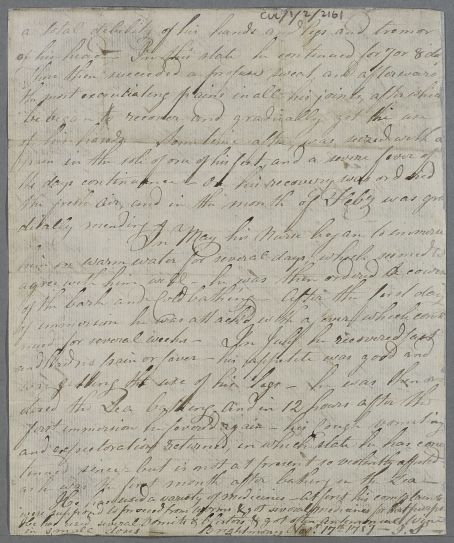 CUL/1/2/2161
a total debility of his hands & legs and tremor
of his head — In this state he continued for 7 or 8 days
time then succeeded a profuse sweat, and afterwards
the most excruciating pains in all his joints, after which
he began to recover and gradually got the use
of his hands. Sometime after was seized with a
pain in the sole of one of his feet, and a severe fever of
the days continuance — On his recovery was ordered
the fresh air, and in the month of Feby was gra
dually mending. In May his Nurse began to immerse
him in warm water for several days, which seemed to
agree with him well — he was then ordered a course
of the bark and Cold bathing — After the first day
of immersion he was attacked with a fever which conti
nued for several weeks — In July he recovered fast
and had no pain or fever — his appetite was good and
the use of his legs — he was then or
dered the Sea bathing and in 12 hours after the
first immersion he fevered again — his cough vomiting
and expectoration returned in which state he has con
tinued since — but is not at present so violently affected
as he was the first month after bathing in the Sea —
He has used a variety of medicines — At first his complaints
were supposed to proceed from worms & got several medicines for that purpose
He has used several Vomits & blisters, & got
in small doses. 17th 1789 —